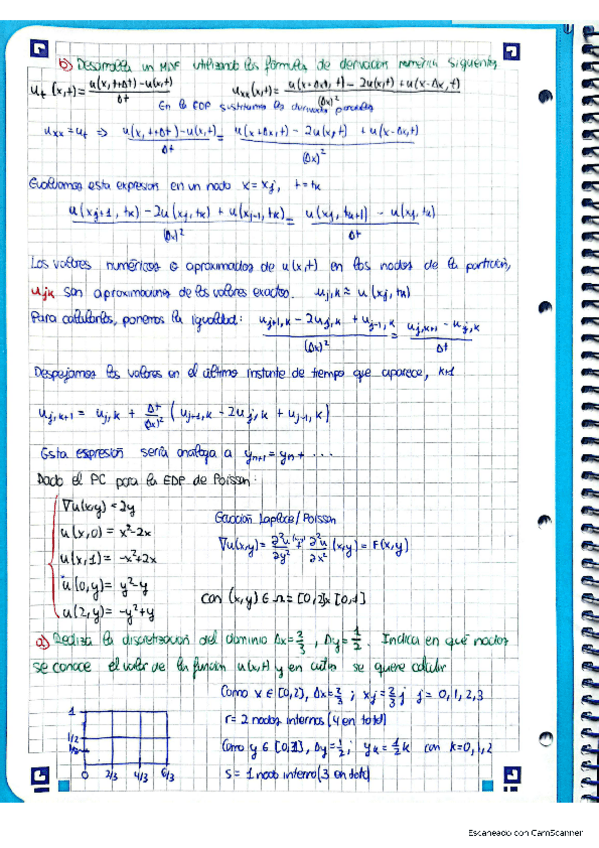 b) Desarrolla un MDF utilizando las fórmulas de derivacion numérica siguientes
u_t (x,t) = u(x,t+Δt) - u(x,t) / Δt    u_xx(x,t) = u(x+Δx,t) - 2u(x,t) + u(x-Δx,t) / (Δx)²
En la EDP sustituimos las derivadas parciales
u_xx = u_t ⇒ u(x,t+Δt) - u(x,t) / Δt = u(x+Δx,t) - 2u(x,t) + u(x-Δx,t) / (Δx)²
Evaluamos esta expresion en un nodo x = x_j, t = t_k
u(x_j+1, t_k) - 2u(x_j, t_k) + u(x_j-1, t_k) / (Δx)² = u(x_j, t_k+1) - u(x_j, t_k) / Δt
Los valores numéricos o aproximados de u(x,t) en los nodos de la partición,
u_jk son aproximaciones de los valores exactos. u_j,k ≈ u(x_j, t_k)
Para calcularlos, ponemos la igualdad: u_j+1,k - 2u_j,k + u_j-1,k / (Δx)² = u_j,k+1 - u_j,k / Δt
Despejamos los valores en el último instante de tiempo que aparece, k+1
u_j,k+1 = u_j,k + Δt/(Δx)² (u_j+1,k - 2u_j,k + u_j-1,k)
Esta expresión sería análoga a y_n+1 = y_n + ...
Dado el PC para la EDP de Poisson:
∇u(x,y) = 2y
u(x,0) = x²-2x
u(x,1) = -x²+2x
u(0,y) = y²-y
u(2,y) = -y²+y
Ecuación Laplace/Poisson
∇u(x,y) = ∂²u/∂y² (x,y) + ∂²u/∂x² (x,y) = F(x,y)
con (x,y) ∈ Ω = [0,2]x[0,1]
a) Realiza la discretización del dominio Δx = 2/3, Δy = 1/2. Indica en qué nodos
se conoce el valor de la función u(x,t) y en cuáles se quiere calcular
Como x ∈ [0,2], Δx = 2/3; x_j = 2/3 j j = 0,1,2,3
r = 2 nodos internos (4 en total)
Como y ∈ [0,1], Δy = 1/2; y_k = 1/2 k con k = 0,1,2
s = 1 nodo interno (3 en total)
1
1/2
0 2/3 4/3 6/3
Escaneado con CamScanner